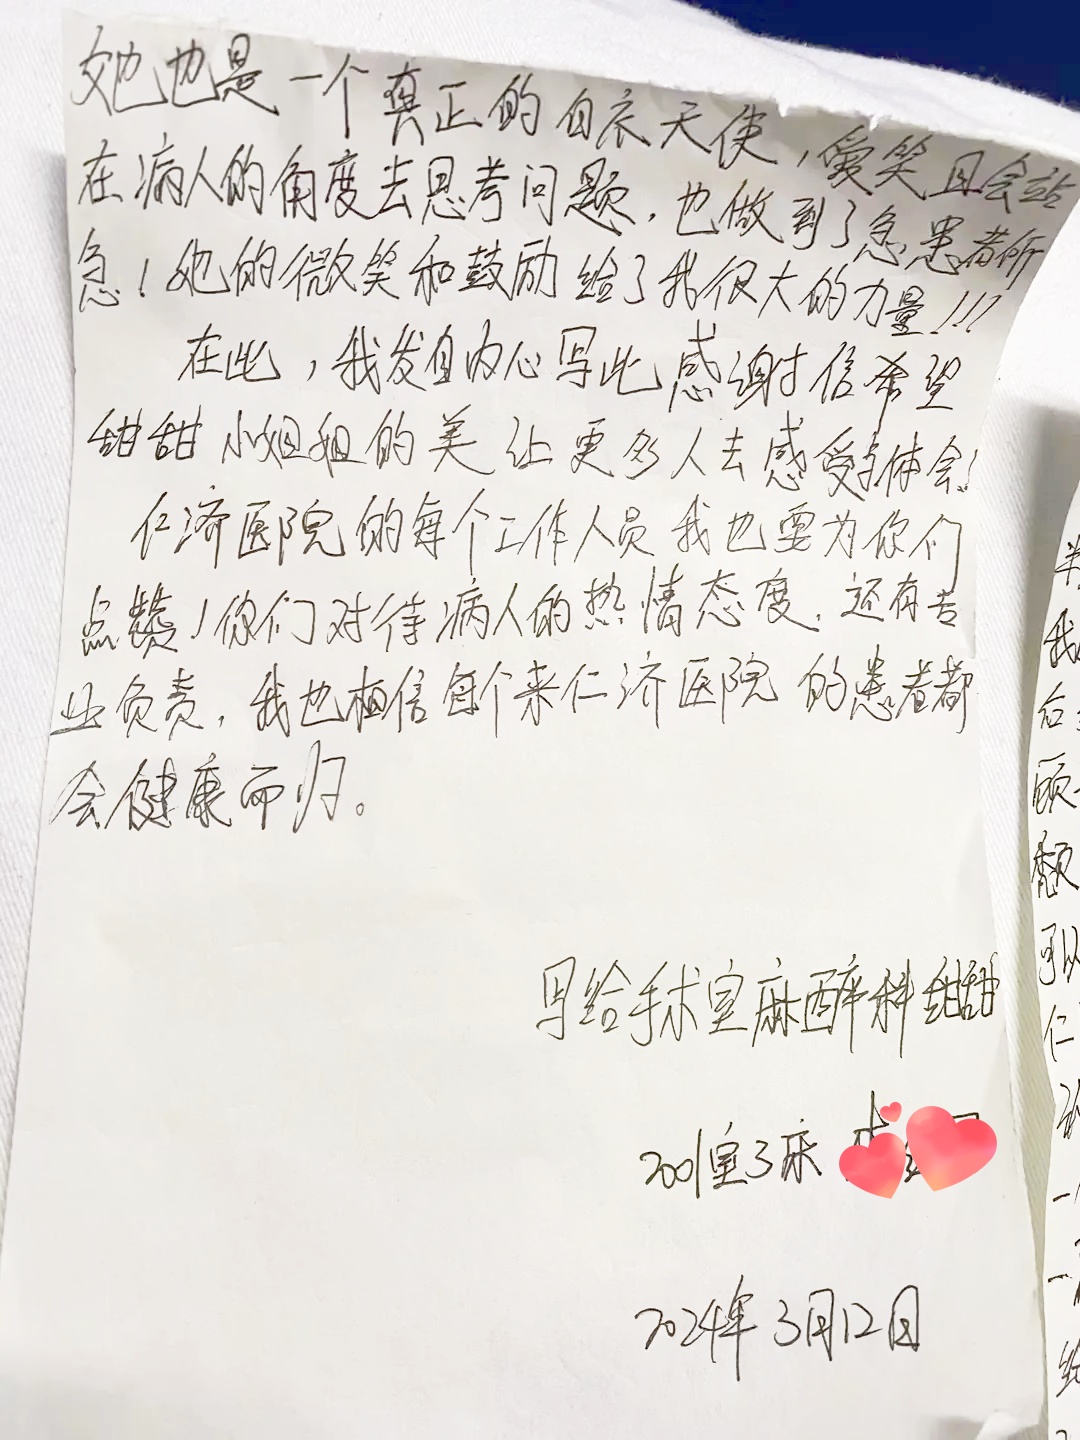 她也是一个真正的白衣天使，爱笑且会站
在病人的角度去思考问题，也做到了急患者所
急！她的微笑和鼓励给了我很大的力量！！！
在此，我发自内心写此感谢信希望
甜甜小姐姐的美让更多人去感受与体会！
仁济医院的每个工作人员我也要为你们
点赞！你们对待病人的热情态度，还有苦
业负责，我也相信每个来仁济医院的患者都
会健康而归。
写给手术室麻醉科甜甜
2001室3床
2024年3月12日
我
台
顾
颗
可以
仁
一
一
给